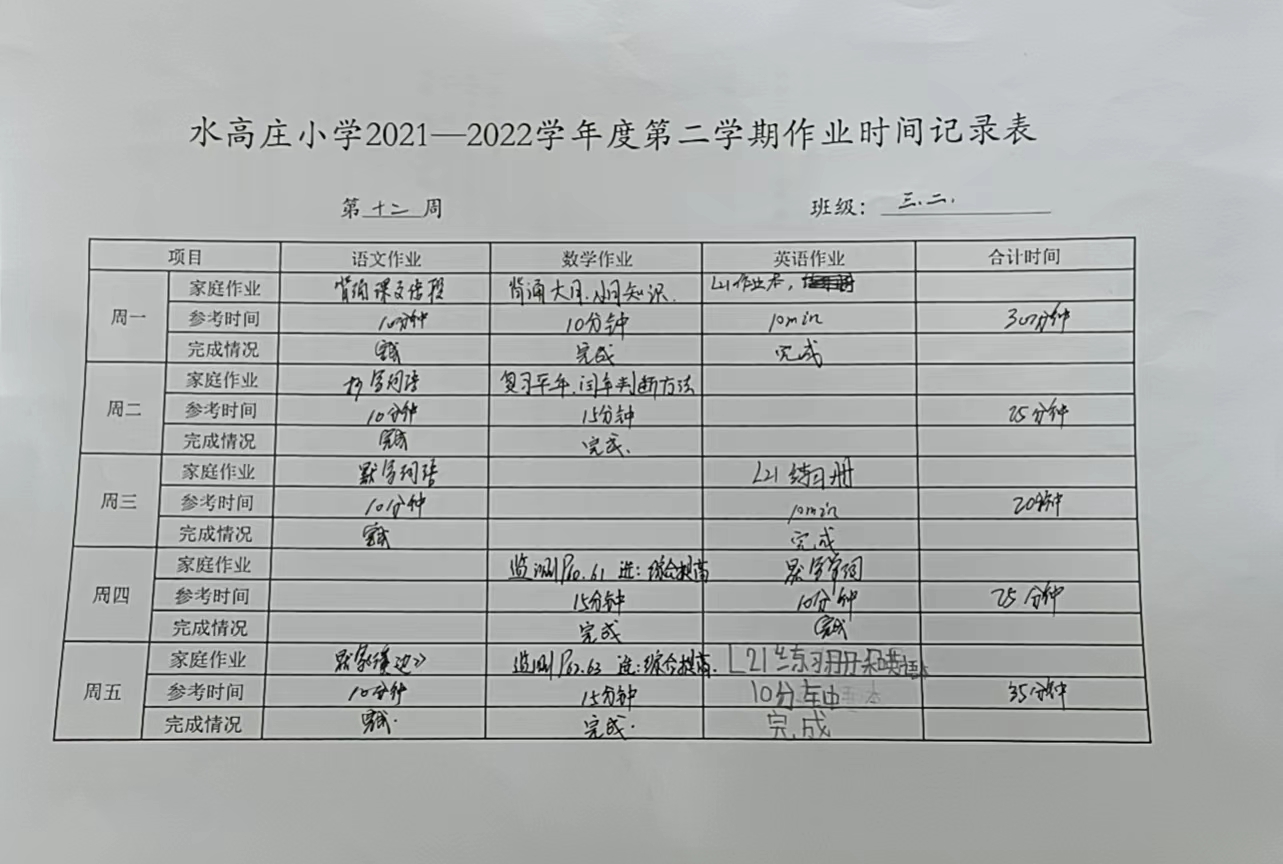 水高庄小学2021—2022学年度第二学期作业时间记录表
第十二周 班级：三.二.
项目 语文作业 数学作业 英语作业 合计时间
周一
家庭作业 背诵课文 背诵大月、小月知识. L21作业本，
参考时间 10分钟 10分钟 10min 30分钟
完成情况 完成 完成 完成
周二
家庭作业 抄写词语 复习平年、闰年判断方法
参考时间 10分钟 15分钟 25分钟
完成情况 完成 完成.
周三
家庭作业 默写词语 L21 练习册
参考时间 10分钟 10min 20分钟
完成情况 完成 完成
周四
家庭作业 监测P60.61 选：综合提高 默写单词
参考时间 15分钟 10分钟 25分钟
完成情况 完成 完成
周五
家庭作业 监测P62.63 选：综合提高. L21练习册
参考时间 10分钟 15分钟 10分钟 35分钟
完成情况 完成. 完成. 完成